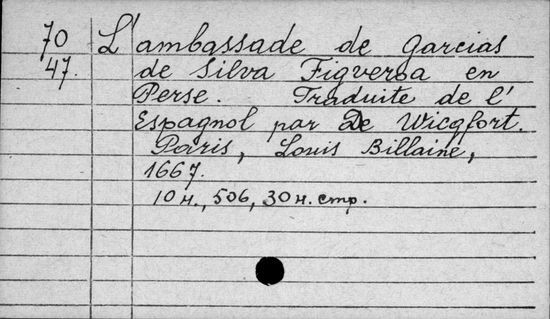 70 L'ambassade de Garcias
47. de Silva Figveroa en
Perse. Traduite de l'
Espagnol par De Wicqfort.
Paris, Louis Billaine,
1667.
10 н., 506, 30 н. стр.